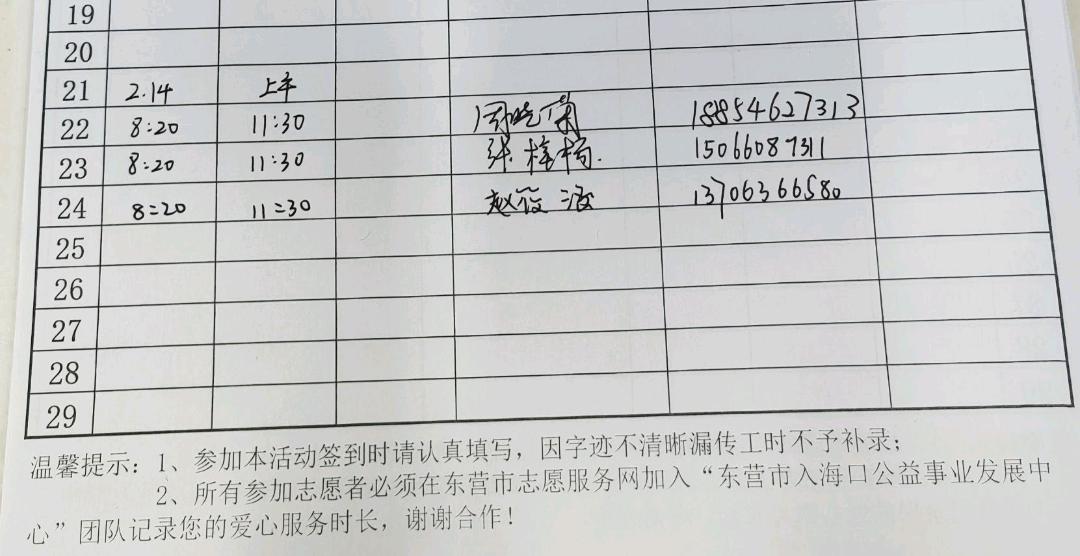 19
20
21 2.14 上午
22 8:20 11:30 周晓 18854627313
23 8:20 11:30 张梅 15066087311
24 8:20 11:30 赵 波 13706366580
25
26
27
28
29
温馨提示：1、参加本活动签到时请认真填写，因字迹不清晰漏传工时不予补录；
2、所有参加志愿者必须在东营市志愿服务网加入“东营市入海口公益事业发展中
心”团队记录您的爱心服务时长，谢谢合作！